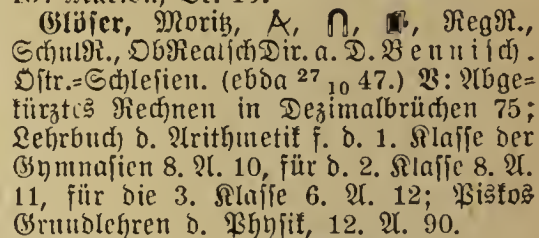 Glöser, Moritz, RegR.,
SchulR., ObRealschDir. a. D. Bennisch.
Östr.=Schlesien. (ebda 27 10 47.) V: Abge=
kürztes Rechnen in Dezimalbrüchen 75;
Lehrbuch d. Arithmetik f. d. 1. Klasse der
Gymnasien 8. A. 10, für d. 2. Klasse 8. A.
11, für die 3. Klasse 6. A. 12; Piskos
Grundlehren d. Physik, 12. A. 90.